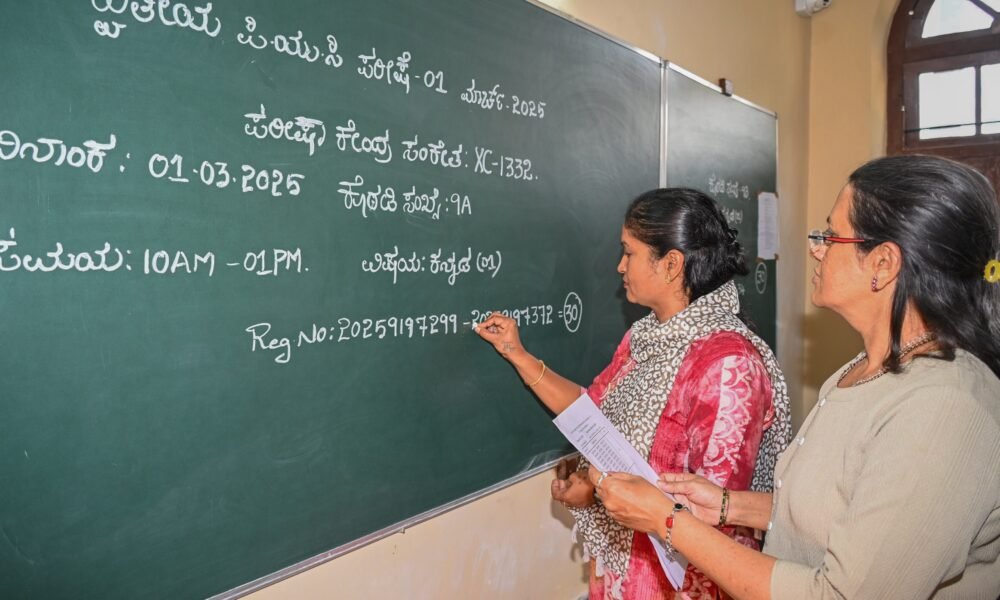 ದ್ವಿತೀಯ ಪಿ.ಯು.ಸಿ ಪರೀಕ್ಷೆ-01 ಮಾರ್ಚ್-2025
ಪರೀಕ್ಷಾ ಕೇಂದ್ರ ಸಂಕೇತ: XC-1332.
ದಿನಾಂಕ: 01.03.2025 ಕೊಠಡಿ ಸಂಖ್ಯೆ: 9A
ಸಮಯ: 10AM - 01PM. ವಿಷಯ: ಕನ್ನಡ (01)
Reg No: 20259197299 - 20259197372 = 30